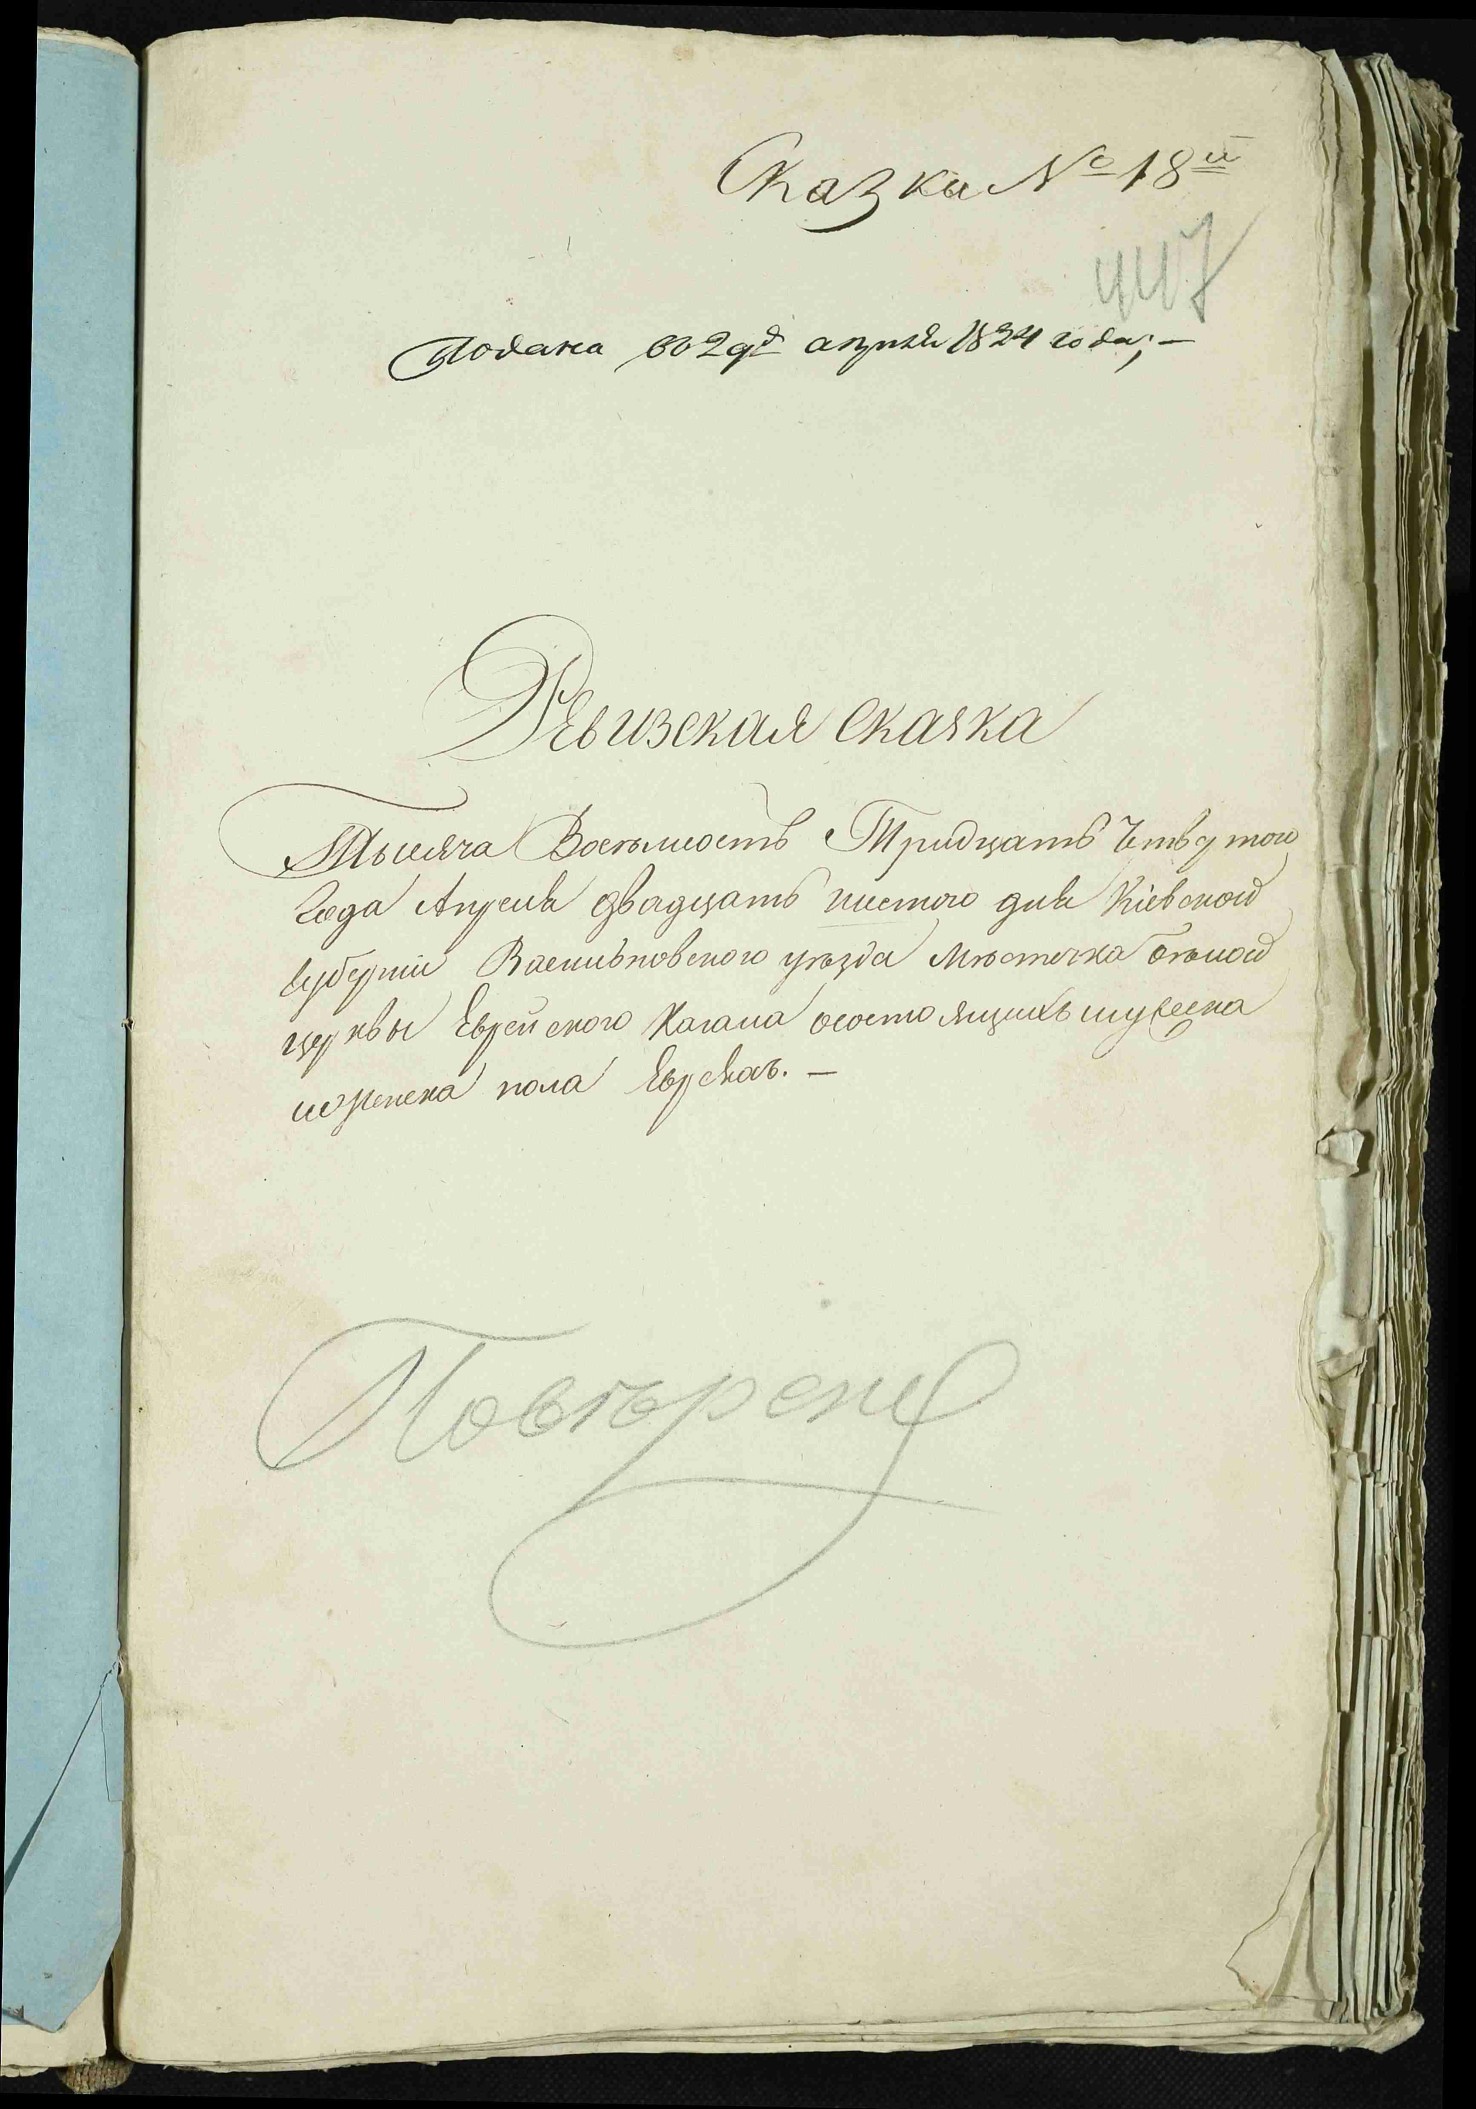 Сказка № 18й
447
Подана во 29й апреля 1834 года;—
Ревизская сказка
Тысяча Восемьсотъ Тридцать Четвертого
Года Апреля двадцать шестого дня Кіевской
губерніи Васильковского уезда местечка белой
церквы Еврейского Кагала осостоящихъ мужеска
и женска пола Евреяхъ.—
Поверено